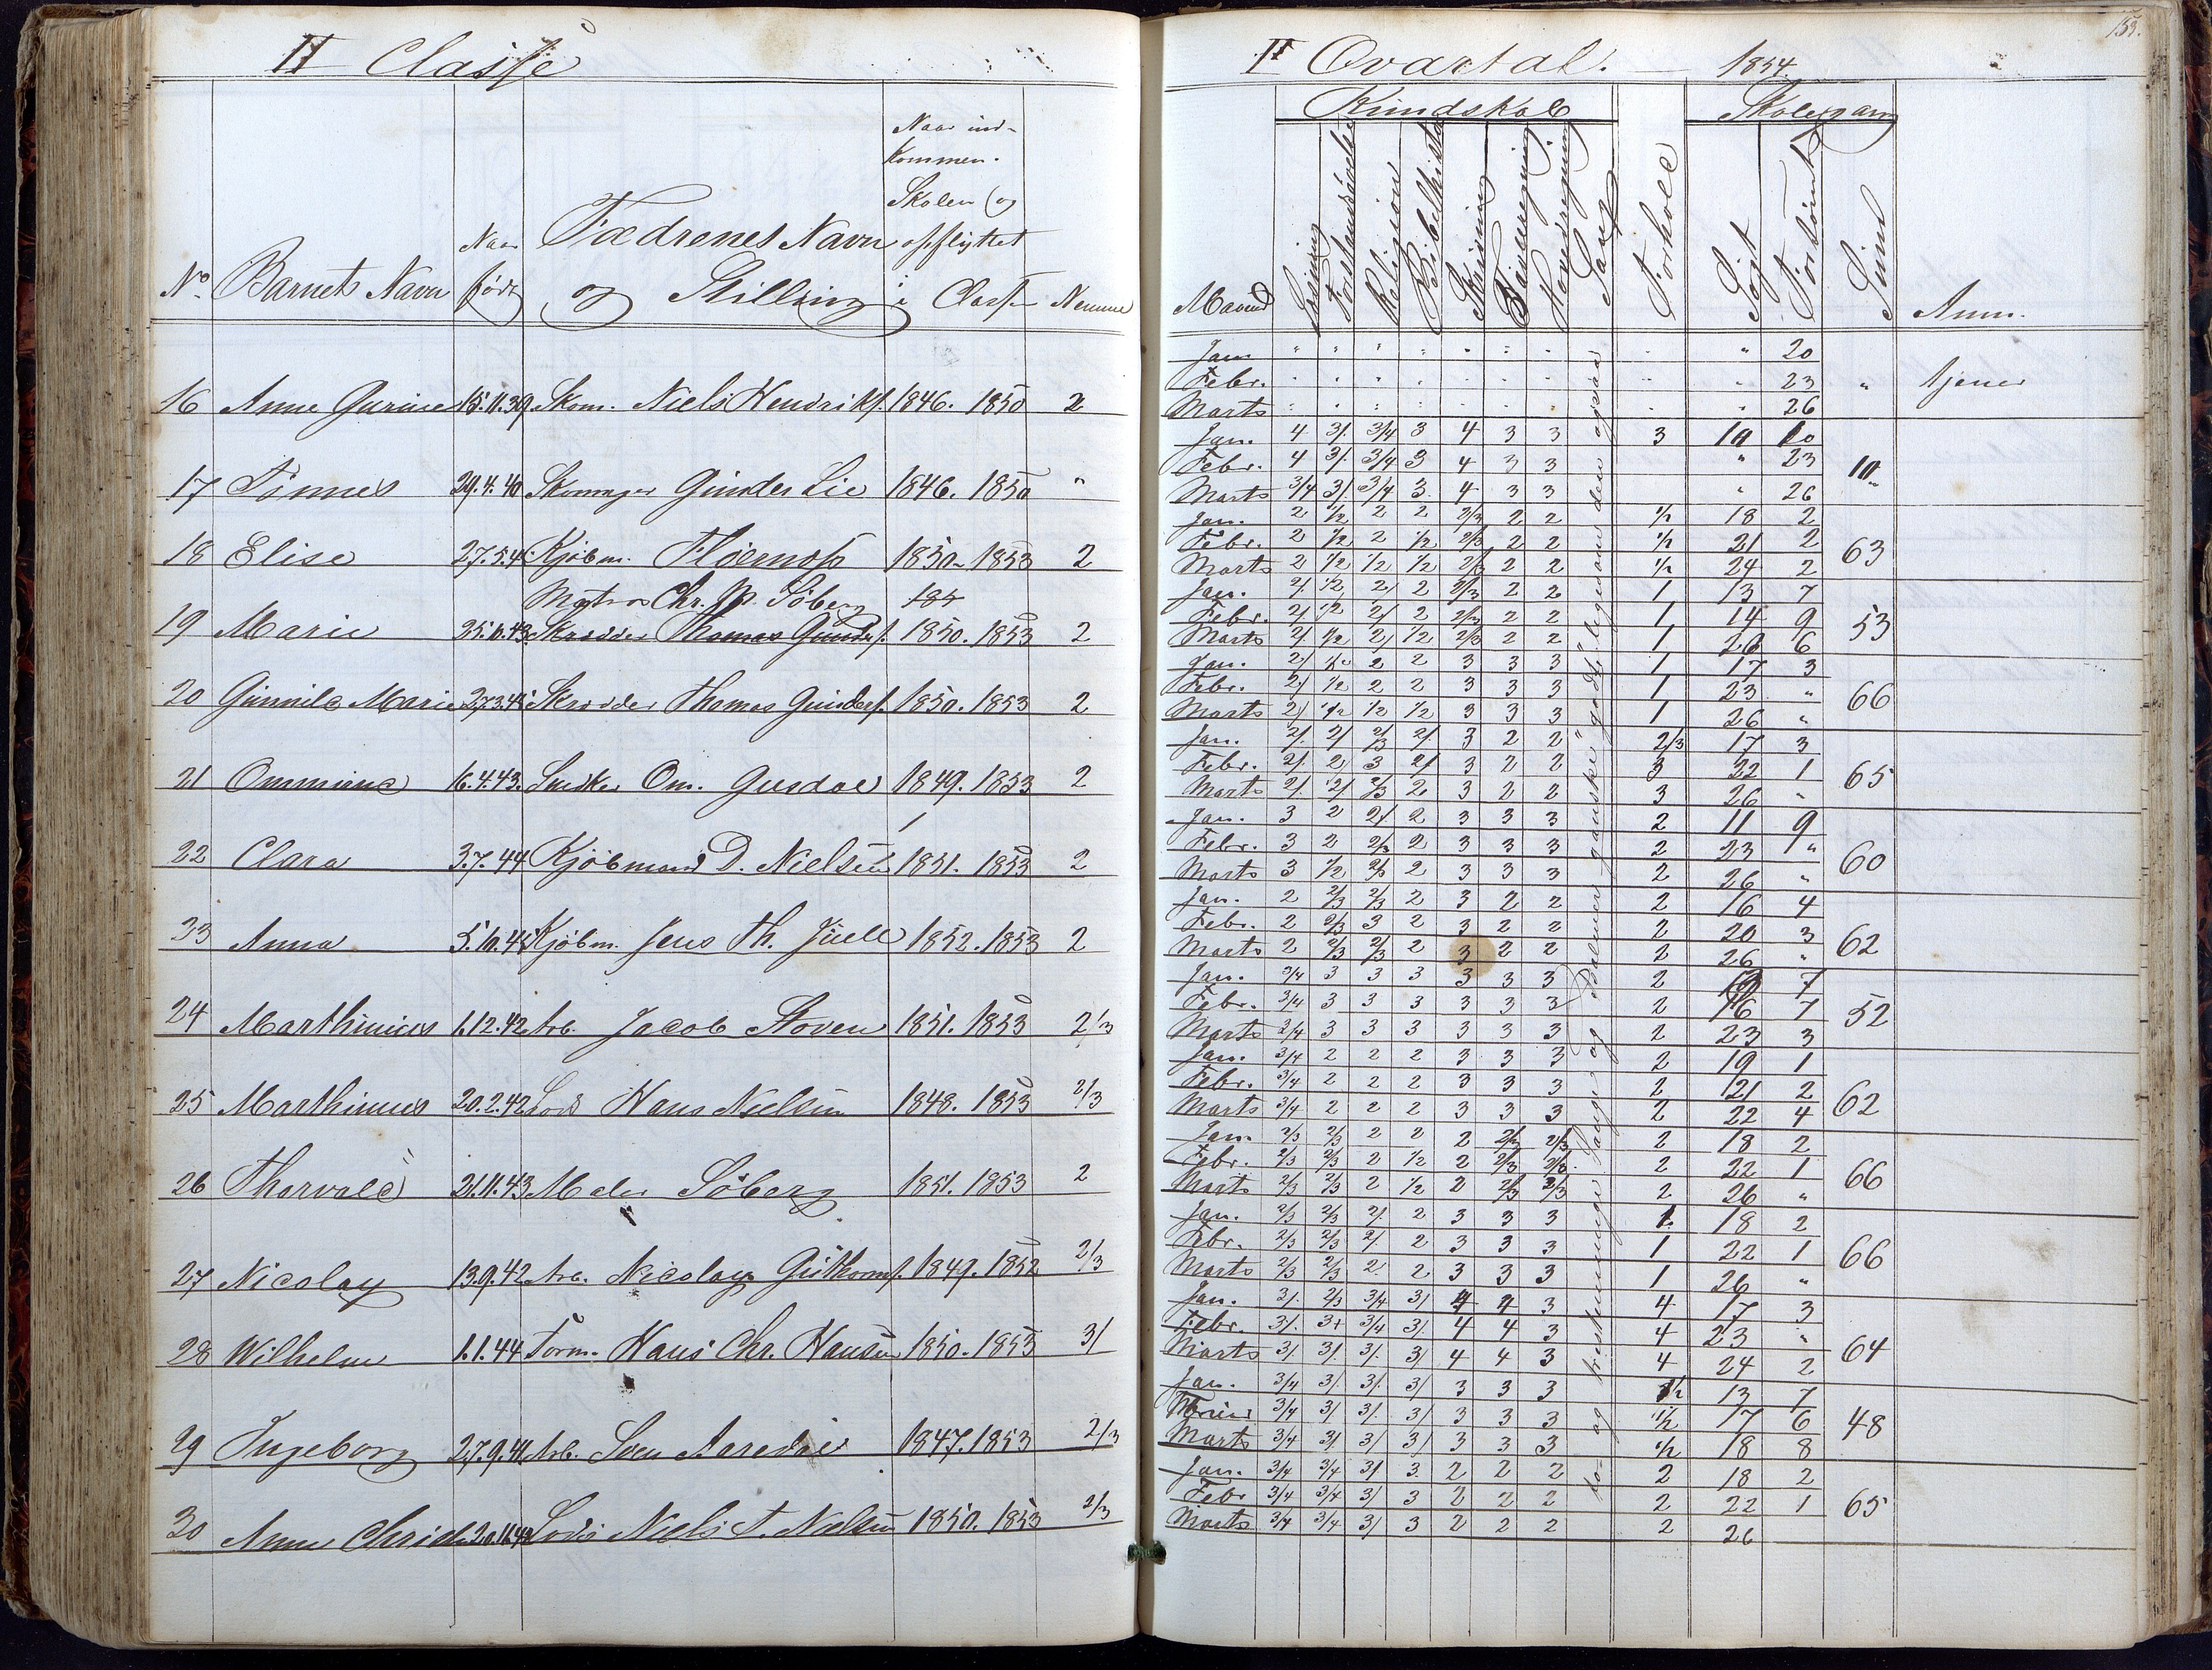 II Classe
No. Barnets Navn Naar født Fædrenes Navn og Stilling Naar ind-kommen i Skolen (og opflyttet i Classen Nemme
16 Anne Gurine 15.11.39. Skom. Niels Hendriks. 1846. 1850 2
17 Tönnes 29.4.40 Skomager Gunder Lie 1846. 1850 "
18 Elise 27.5.4 Kjöbm. 1850. 1853 2
Matros Chr. M. Söberg 185
19 Marie 25.6.43 Skrædder Thomas Gunders. 1850. 1853 2
20 Gunnild Marie 27.3.41 Skrædder Thomas Gunders. 1850. 1853 2
21 Ommine 16.4.43. Snedker Om. Gusdal 1849. 1853 2
22 Clara 3.7.44 Kjöbmand D. Nielsen 1851. 1853 2
23 Anna 5.10.41 Kjöbm. Jens Th. Juell 1852. 1853 2
24 Marthinius 1.12.42 Arb. Jacob Stoven 1851. 1853 2/3
25 Marthinius 20.2.42 Lods Hans Nielsen 1848. 1853 2/3
26 Thorvald 21.11.43 Maler Söberg 1851. 1853 2
27 Nicolay 13.9.42 Arb. Nicolay Guthorms. 1849. 1852 2/3
28 Wilhelm 1.1.44 Törm. Hans Chr. Hansen 1850. 1853 3/
29 Ingeborg 27.9.41 Arb. Sven 1847. 1853 2/3
30 Anne 20.11.42 Lods Niels T. Nielsen 1850. 1853 2/3
153.
I Qvartal. — 1854.
Kundskab Skolegang
Maaned Læsning Forstandsøvelse Religion Bibelhistorie Skrivning Tavleregning Hovedregning Sang Forhold Søgt Forsømt Sum Anm.
Jan " " " " " " " " " 20
Febr. " " " " " " " " " 23 " tjener
Marts " " " " " " " " " 26
Jan. 4 3/. 3/4 3 4 3 3 3 10 10
Febr. 4 3/. 3/4 3 4 3 3 " 23 10
Marts 3/4 3/. 3/4 3 4 3 3 " 26
Jan. 2 1/2 2 2 2/3 2 2 1/2 18 2
Febr. 2 1/2 2 1/2 2/3 2 2 1/2 21 2 63
Marts 2 1/2 1/2 1/2 2/3 2 2 1/2 24 2
Jan. 2/. 1/2 2/ 2 2/3 2 2 1 13 7
Febr. 2/. 1/2 2/ 2 2/3 2 2 1 14 9 53
Marts 2/. 1/2 2/ 1/2 2/3 2 2 1 26 6
Jan. 2/ 1/2 2 2 3 3 3 1 17 3
Febr. 2/ 1/2 2 2 3 3 3 1 23 " 66
Marts 2/ 1/2 1/2 1/2 3 3 3 1 26 "
Jan. 2/. 2/ 2/3 2/. 3 2 2 2/3 17 3
Febr. 2/. 2 3 2/ 3 2 2 3 22 1 65
Marts 2/. 2/ 2/3 2 3 2 2 3 26 "
Jan. 3 2 2/ 2 3 3 3 2 11 9
Febr. 3 2 2/3 2 3 3 3 2 23 " 60
Marts 3 1/2 2/3 2 3 3 3 2 26 "
Jan. 2 2/3 2/3 2 3 2 2 2 16 4
Febr. 2 2/3 3 2 3 2 2 2 20 3 62
Marts 2 2/3 2/3 2 3 2 2 2 26 "
Jan. 3/4 3 3 3 3 3 3 2 7
Febr. 3/4 3 3 3 3 3 3 2 16 7 52
Marts 3/4 3 3 3 3 3 3 2 23 3
Jan. 3/4 2 2 2 3 3 3 2 19 1
Febr. 3/4 2 2 2 3 3 3 2 21 2 62
Marts 3/4 2 2 2 3 3 3 2 22 4
Jan. 2/3 2/3 2 2 2 2/3 2/3 2 18 2
Febr. 2/3 2/3 2 1/2 2 2/3 2/3 2 22 1 66
Marts 2/3 2/3 2 1/2 2 2/3 2/3 2 26 "
Jan. 2/3 2/3 2/. 2 3 3 3 1 18 2
Febr. 2/3 2/3 2/ 2 3 3 3 1 22 1 66
Marts 2/3 2/3 2 2 3 3 3 1 26 "
Jan. 3/. 2/3 3/4 3/ 4 4 3 4 17 3
Febr. 3/. 3+ 3/4 3/. 4 4 3 4 23 " 64
Marts 3/ 3/. 3/. 3/ 4 4 3 4 24 2
Jan. 3/4 3/. 3/. 3/ 3 3 3 1/2 13 7
Februar 3/4 3/ 3/. 3/ 3 3 3 1/2 17 6 48
Marts 3/4 3/. 3/ 3/ 3 3 3 1/2 18 8
Jan. 3/4 3/4 3/ 3. 2 2 2 2 18 2
Febr 3/4 3/4 3/ 3 2 2 2 2 22 1 65
Marts 3/4 3/4 3/ 3 2 2 2 2 26
to- og trestemmige Sange og Psalmer "ganske godt" ligesom den ogsaa